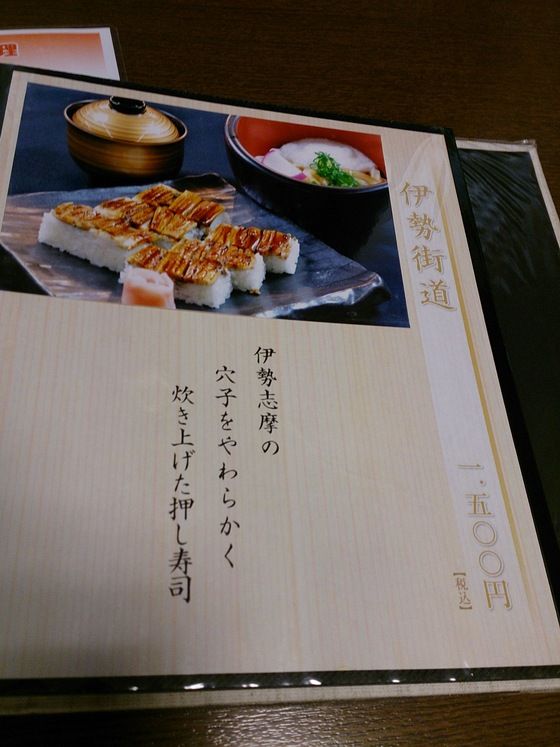 理
伊勢街道
一・五〇〇円
【税込】
伊勢志摩の
穴子をやわらかく
炊き上げた押し寿司